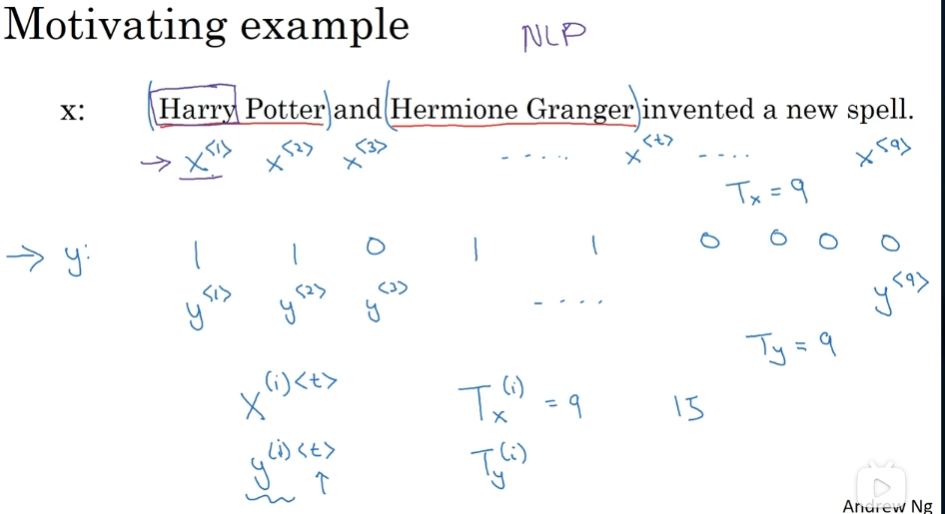 Motivating example NLP
x: Harry Potter and Hermione Granger invented a new spell.
→ x<1> x<2> x<3> ..... x<t> .... x<9>
Tx = 9
→ y: 1 1 0 1 1 0 0 0 0
y<1> y<2> y<3> ..... y<9>
Ty = 9
X(i)<t> Tx(i) = 9 15
y(i)<t> Ty(i)
↑
Andrew Ng